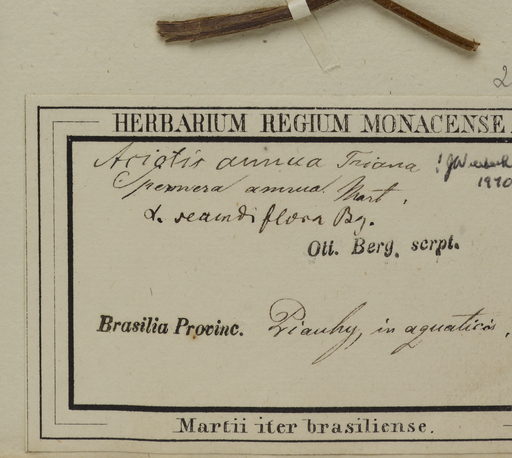 2
HERBARIUM REGIUM MONACENSE.
Aciotis annua Triana !
1990
Spennera annua Mart.
α. secundiflora Bg.
Ott. Berg. scrpt.
Brasilia Provinc. Piauhy, in aquaticis,
Martii iter brasiliense.